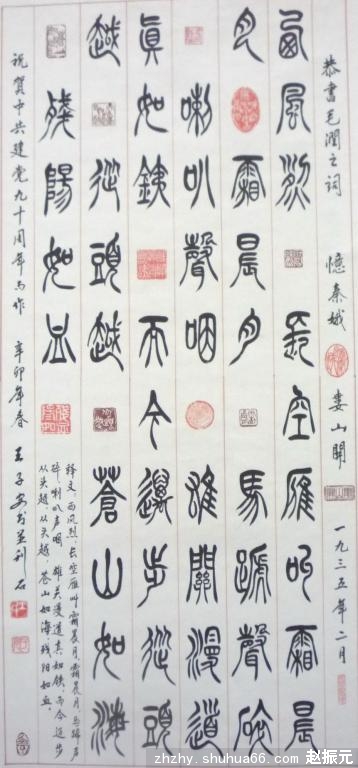 恭書毛潤之詞 憶秦娥 婁山關 一九三五年二月
西風烈 長空雁叫霜晨
月 霜晨月 馬蹄聲碎
喇叭聲咽 雄關漫道
眞如銕 而今邁步從頭
越 從頭越 蒼山如海
殘陽如血
释文:西风烈,长空雁叫霜晨月。霜晨月,马蹄声
碎,喇叭声咽。雄关漫道真如铁,而今迈步
从头越。从头越,苍山如海,残阳如血。
祝賀中共建党九十周年为作 辛卯年春 王子安书並刊石
zhzhy.shuhua66.com 赵振元